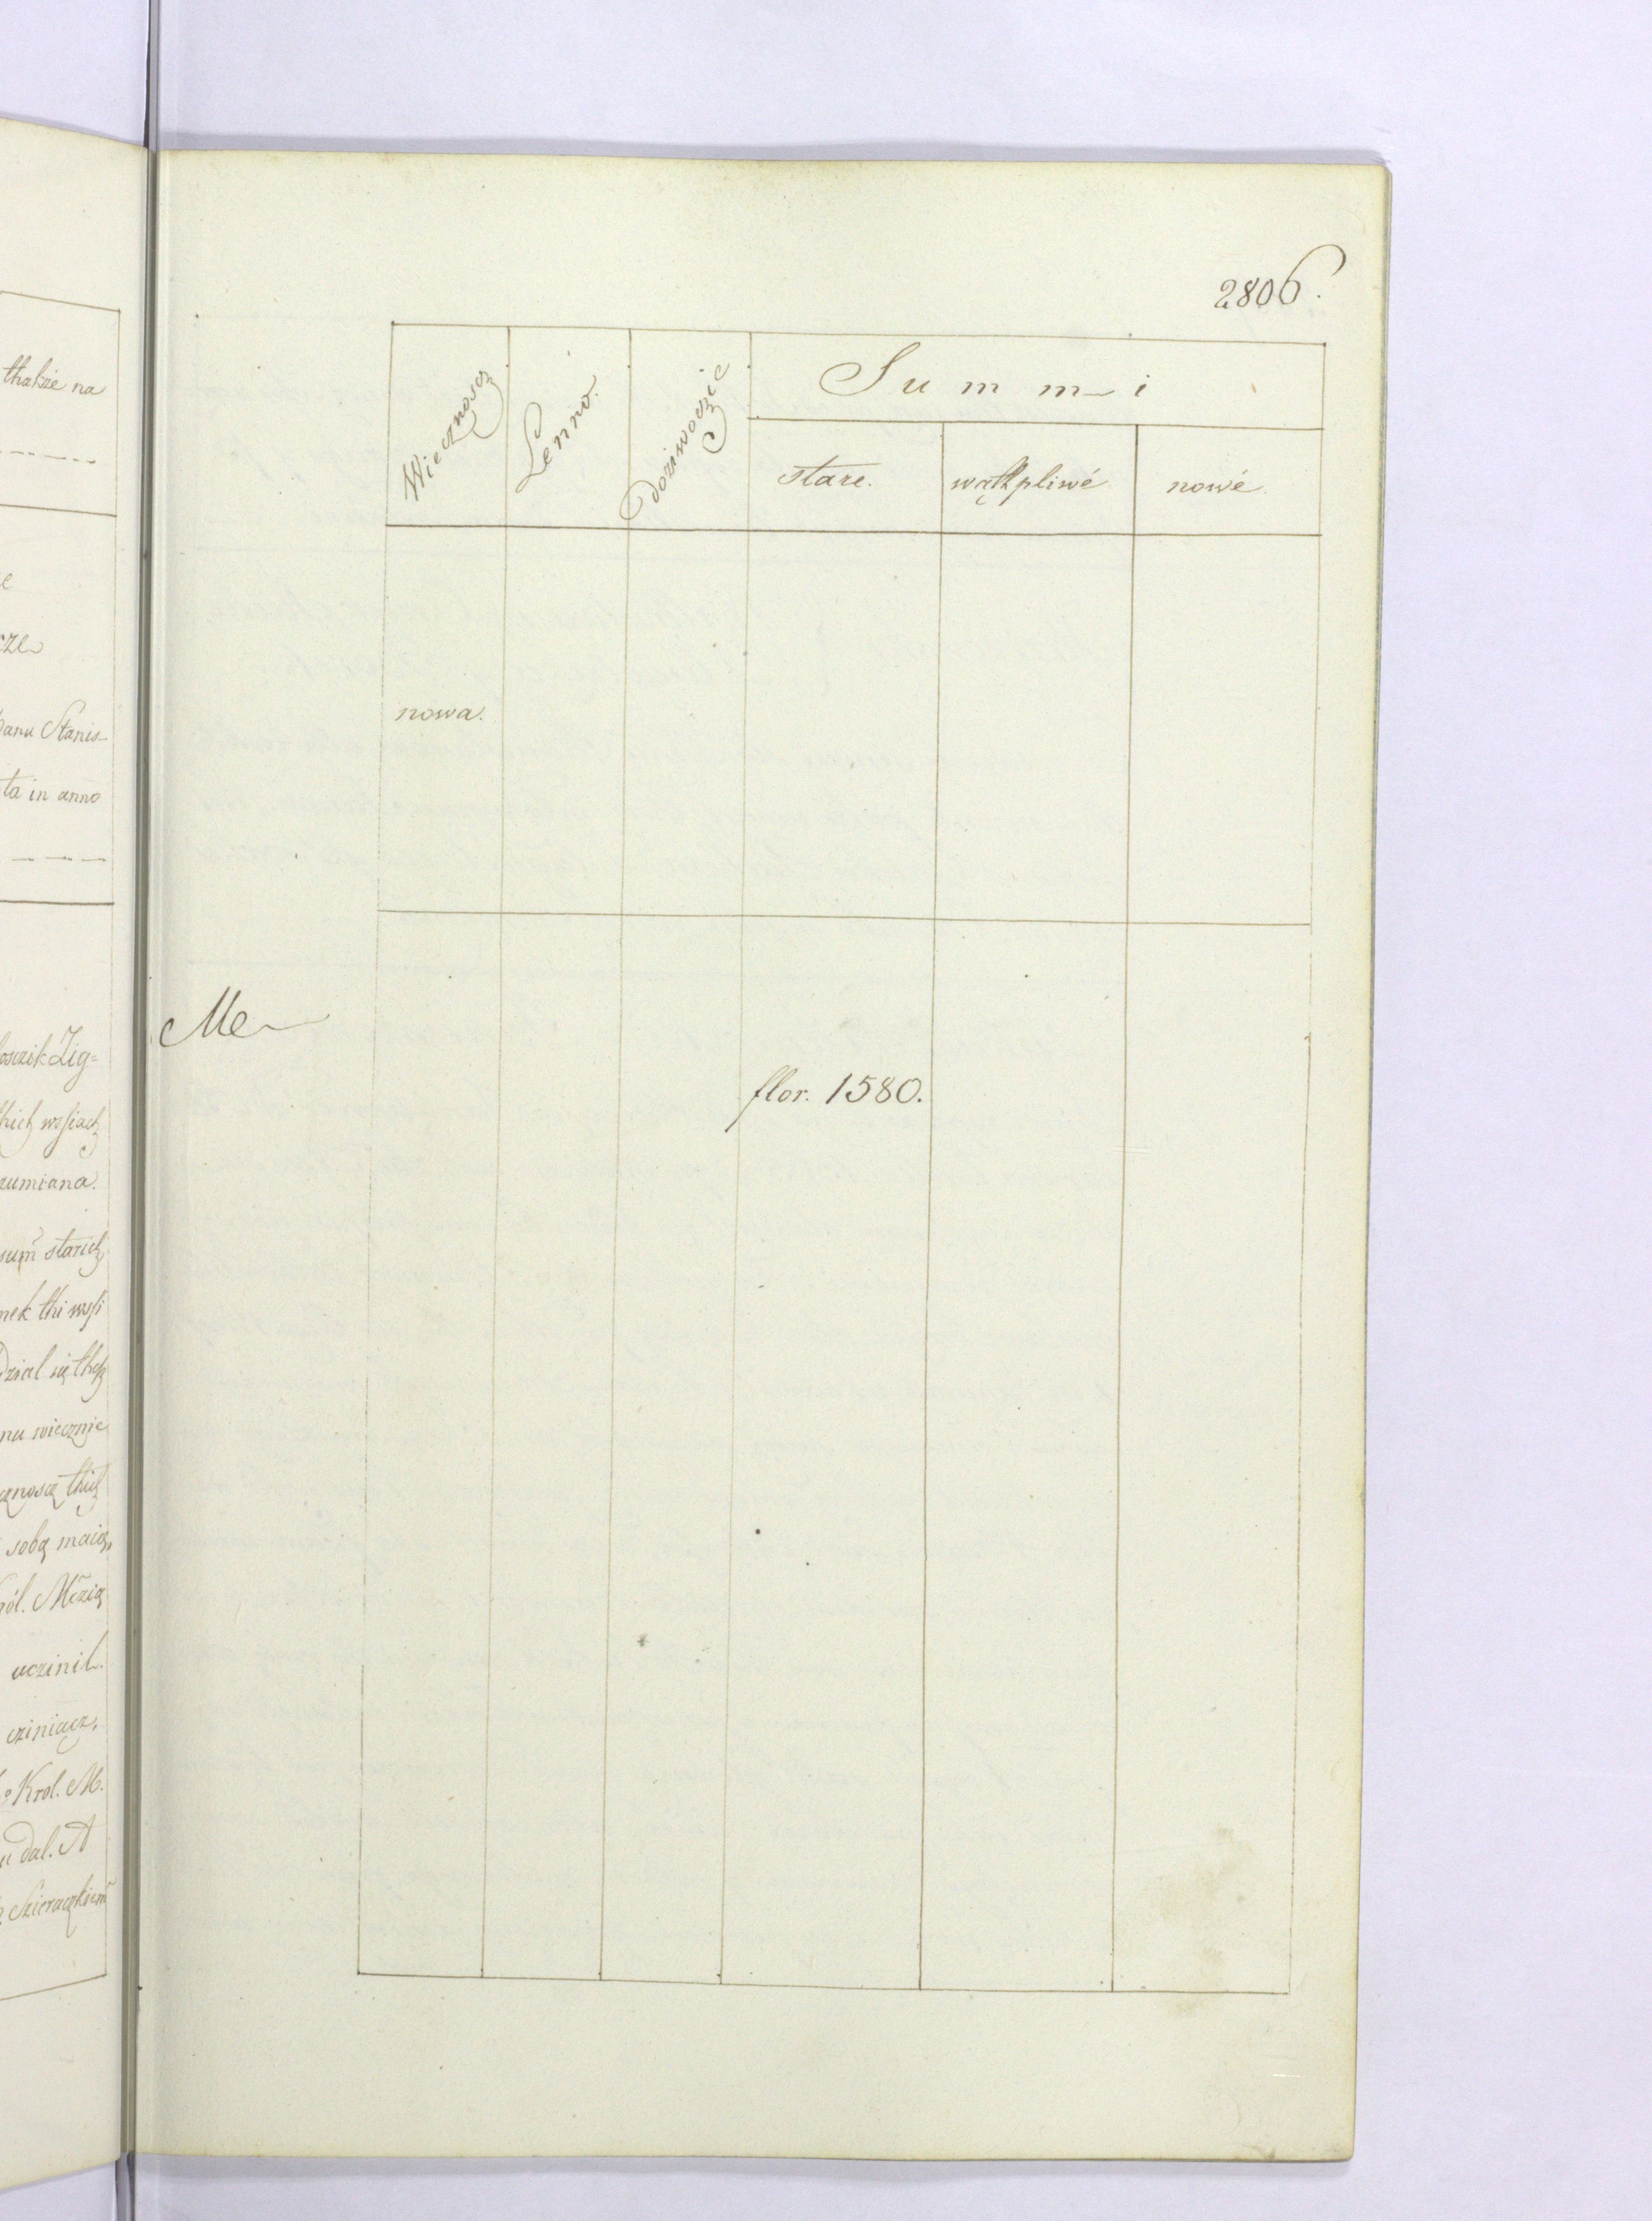 thakże na
e
cze
panu Stanis-
ta in anno
Zig=
thich wssiach
rumiana.
sum̃ starich
nek thi wssi
dzial się thesz
nu wiecznie
thich
sobą maią,
ról. Mczią
uczinil.
cziniącz,
Krol. M.
u dal. A
Szieraczkiem̃
2806.
Wiecznoscz
Lenno.
doziwoczie
Summi
stare.
wąthpliwé
nowé.
nowa.
Me
flor. 1580.